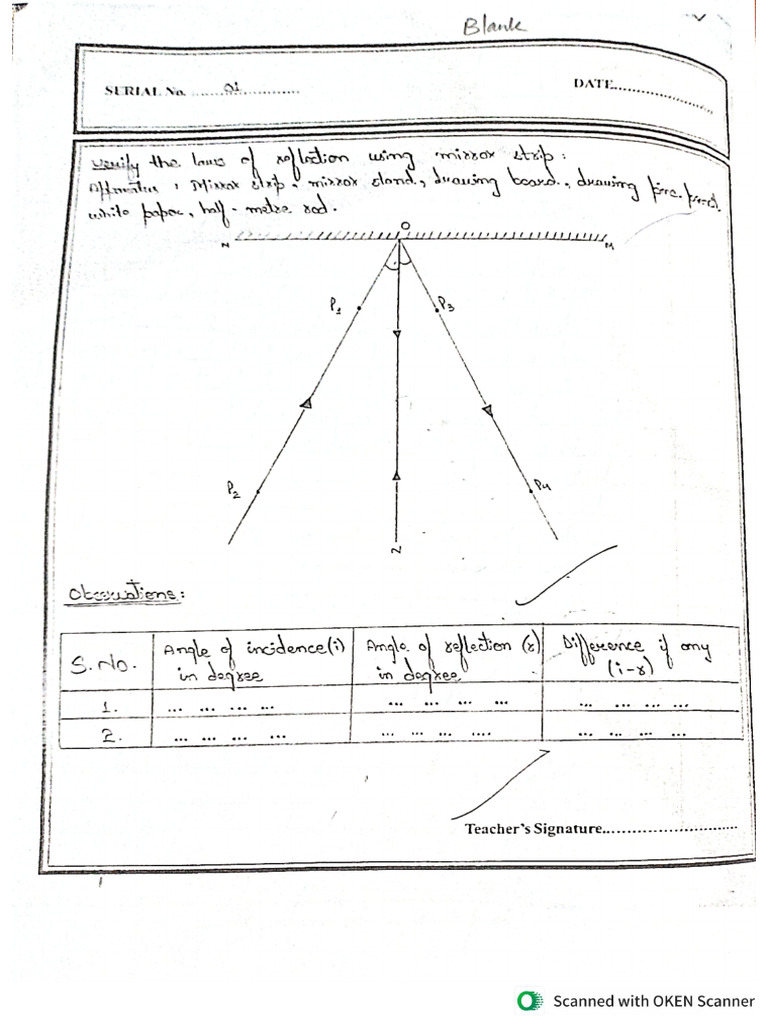 Blank
SERIAL No. ........01.............
DATE........................
Verify the laws of reflection using mirror strip:
Apparatus : Mirror strip, mirror stand, drawing board, drawing pins, pencil,
white paper, half-metre rod.
O
M
P1
P3
P2
P4
N
Observations:
S.No.
Angle of incidence(i) in degree
Angle of reflection (r) in degree
Difference if any (i-r)
1. ... ... ... ... ... ... ... ... ... ... ... ...
2. ... ... ... ... ... ... ... .... ... ... ... ...
Teacher's Signature.............................
Scanned with OKEN Scanner